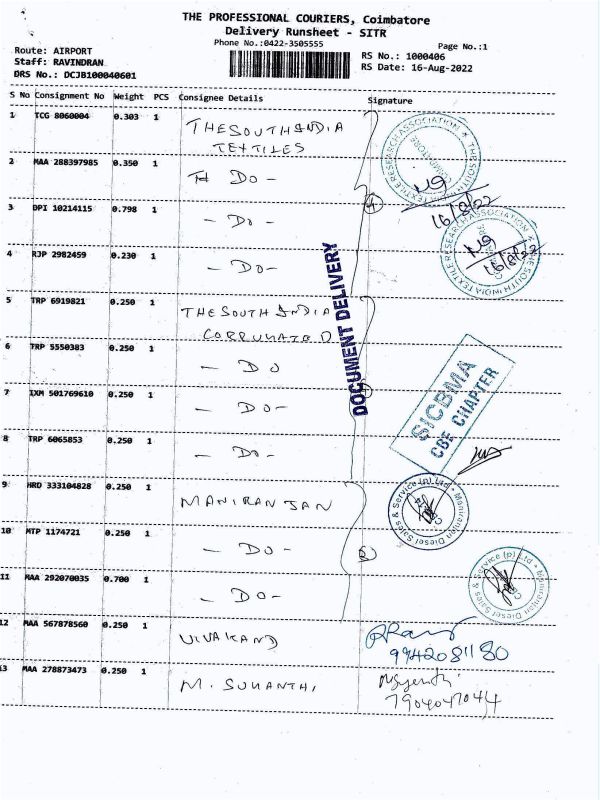 THE PROFESSIONAL COURIERS, Coimbatore
Delivery Runsheet - SITR
Phone No.:0422-3505555
Page No.:1
Route: AIRPORT
Staff: RAVINDRAN
DRS No.: DCJB100040601
RS No.: 1000406
RS Date: 16-Aug-2022
S No Consignment No Weight PCS Consignee Details Signature
1 TCG 8060004 0.303 1 THE SOUTH INDIA
TEXTILES
2 MAA 288397985 0.350 1 - DO -
3 DPI 10214115 0.798 1 - DO -
4 RJP 2982459 0.230 1 - DO -
5 TRP 6919821 0.250 1 THE SOUTH INDIA
CORRUKATED
6 TRP 5550383 0.250 1 - DO
7 IXM 501769610 0.250 1 - DO -
8 TRP 6065853 0.250 1 - DO -
9 HRD 333104828 0.250 1 MANIRANJAN
10 MTP 1174721 0.250 1 - DO -
11 MAA 292070035 0.700 1 - DO -
12 MAA 567878560 0.250 1 VIVAKAND
9942081180
13 MAA 278873473 0.250 1 M. SUMANTHI
7904047044
DOCUMENT DELIVERY
THE SOUTH INDIA TEXTILE RESEARCH ASSOCIATION
COIMBATORE
16/8/22
THE SOUTH INDIA TEXTILE RESEARCH ASSOCIATION
16/8/22
SICBMA
CBE CHAPTER
Maniranjan Diesel Sales & Service (p) Ltd
Maniranjan Diesel Sales & Service (p) Ltd